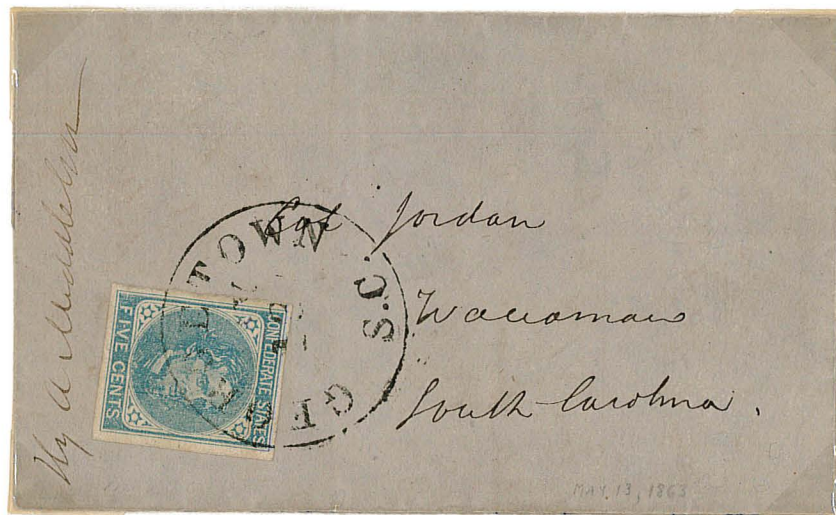 Jordan
Waccamaw
South Carolina.
GE TOWN S.C.
CONFEDERATE STATES
FIVE CENTS
MAY 13, 1863